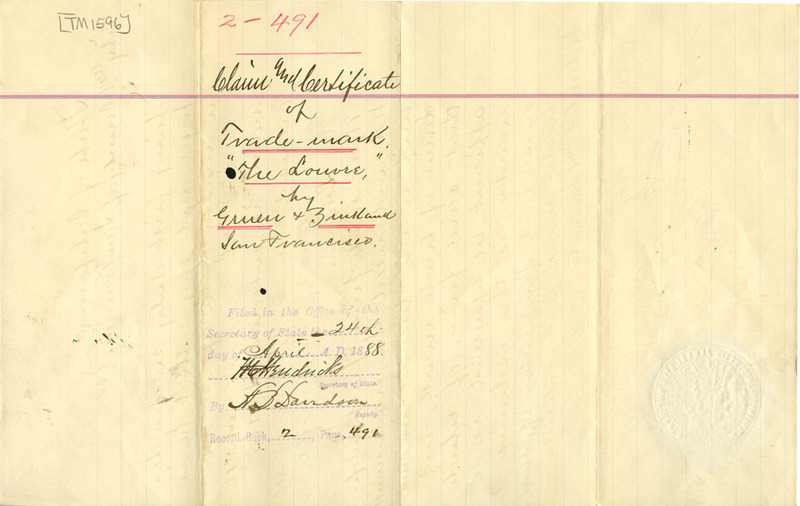 [TM1596]
2-491
Claim and Certificate
of
Trade-mark,
"The Louvre,"
by
Gruen & Zinkand
San Francisco.
Filed in the Office of the
Secretary of State the 24th
day of April A.D. 1888.
W C Hendricks
Secretary of State.
By H B Davidson
Deputy.
Record Book, 2, Page, 491